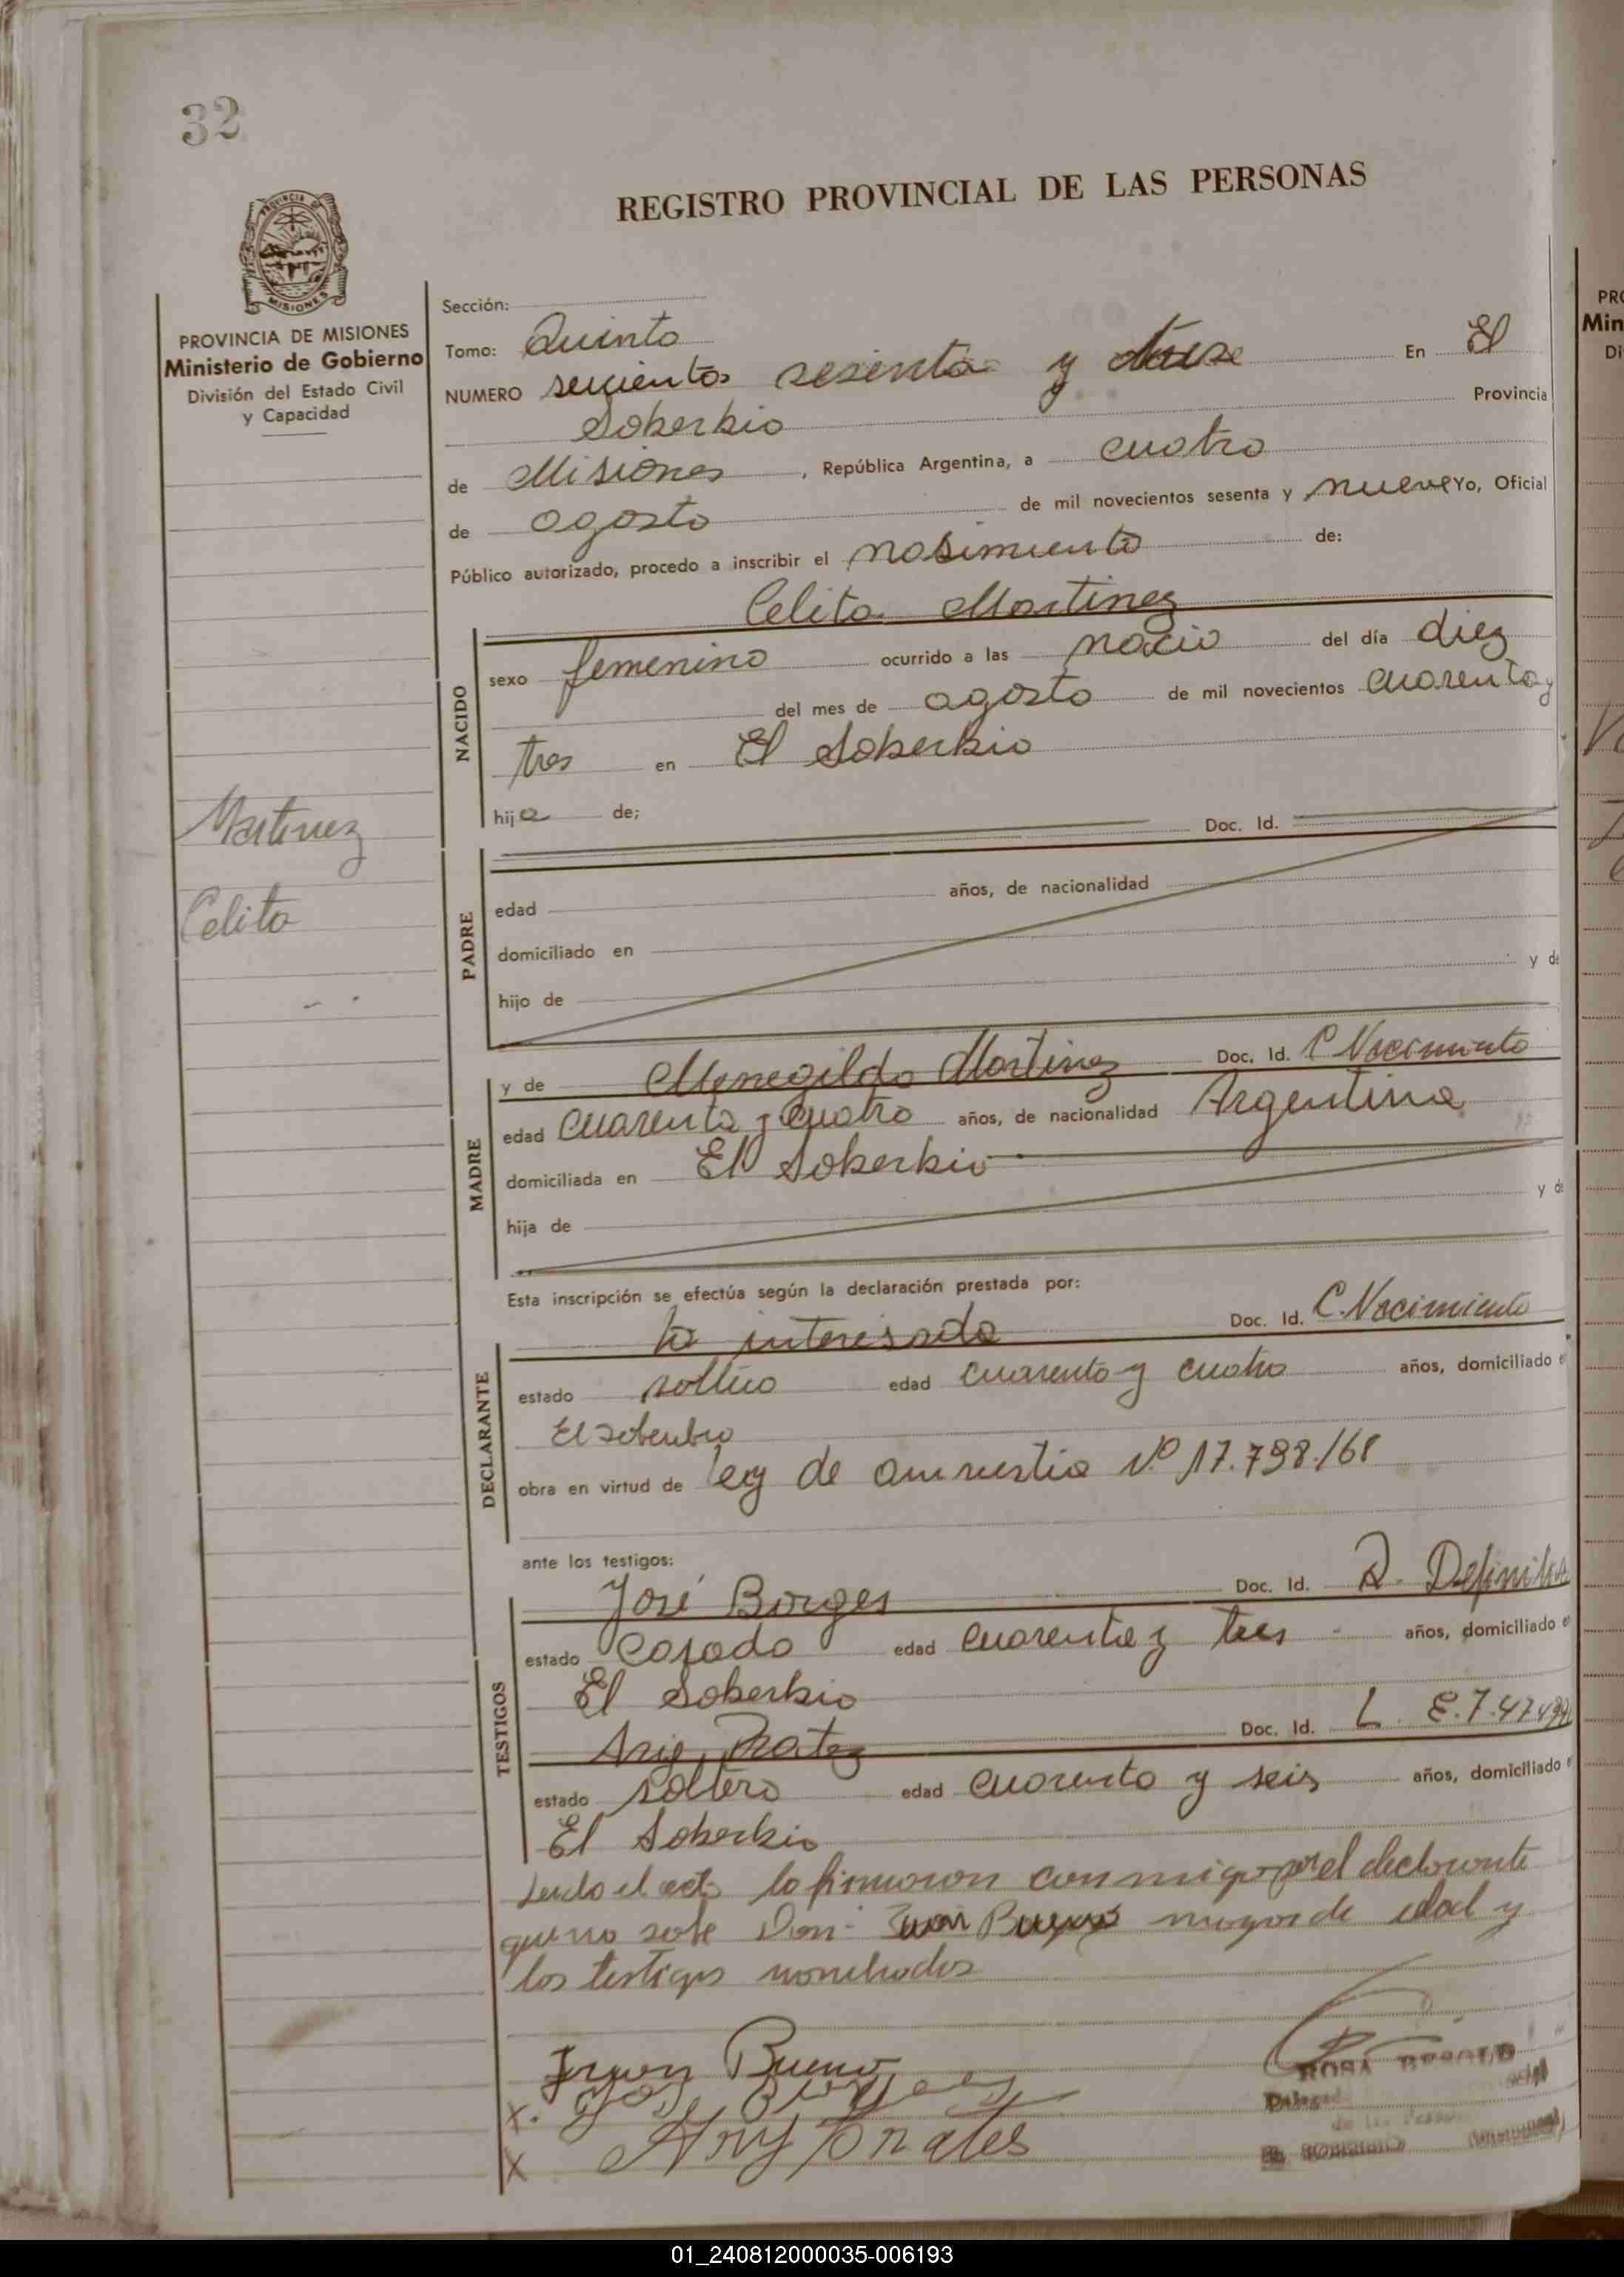 32
REGISTRO PROVINCIAL DE LAS PERSONAS
PROVINCIA DE MISIONES
Ministerio de Gobierno
División del Estado Civil
y Capacidad
Sección:
Tomo: Quinto
NUMERO seiscientos sesenta y En El
Soberbio Provincia
de Misiones , República Argentina, a cuatro
de agosto de mil novecientos sesenta y nueve Yo, Oficial
Público autorizado, procedo a inscribir el nasimiento de:
Celita Martinez
NACIDO
sexo femenino ocurrido a las nacio del día diez
del mes de agosto de mil novecientos cuarenta y
tres en El Soberbio
hija de; Doc. Id.
Martinez
Celita
PADRE
edad años, de nacionalidad
domiciliado en
hijo de y de
MADRE
y de Menegilda Martinez Doc. Id. C Nacimiento
edad cuarenta y cuatro años, de nacionalidad Argentina
domiciliada en El Soberbio
hija de y de
Esta inscripción se efectúa según la declaración prestada por:
la interesada Doc. Id. C. Nacimiento
DECLARANTE
estado soltero edad cuarenta y cuatro años, domiciliado en
El Soberbio
obra en virtud de ley de amnistia Nº 17.798/68
ante los testigos:
José Borges Doc. Id. D. Definitiva
TESTIGOS
estado Casado edad cuarenta y tres años, domiciliado en
El Soberbio
Ary Prates Doc. Id. L. E. 7.47
estado soltero edad cuarenta y seis años, domiciliado en
El Soberbio
Leido el acta la firmaron conmigo por el declarante
que no sabe Don Juan Bueno mayor de edad y
los testigos nombrados
Juan Bueno
x. José Borges
x Ary Prates
ROSA BESOLD
EL SOBERBIO (Misiones)
PRO
Min
Di
01_240812000035-006193